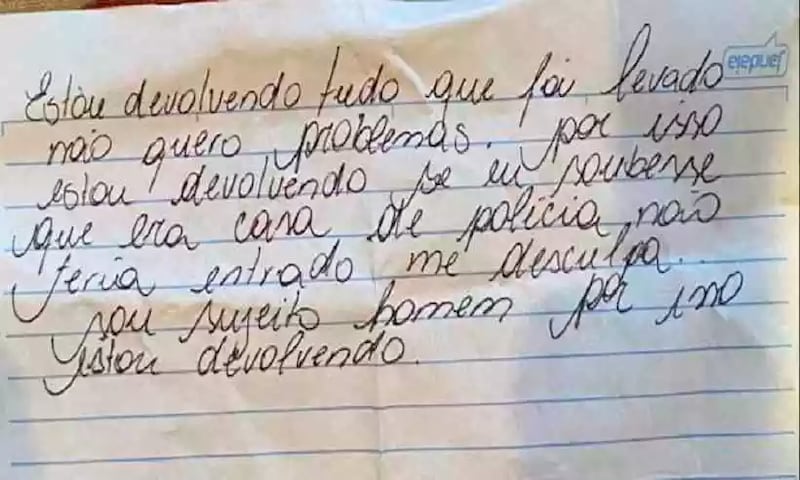 Estou devolvendo tudo que foi levado
não quero problemas. por isso
estou devolvendo se eu soubesse
que era casa de polícia não
teria entrado me desculpa..
sou sujeito homem por isso
estou devolvendo.
jandaia